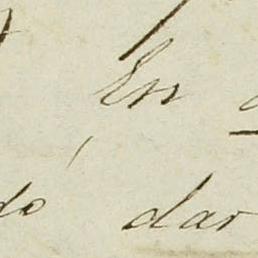 En
do dar